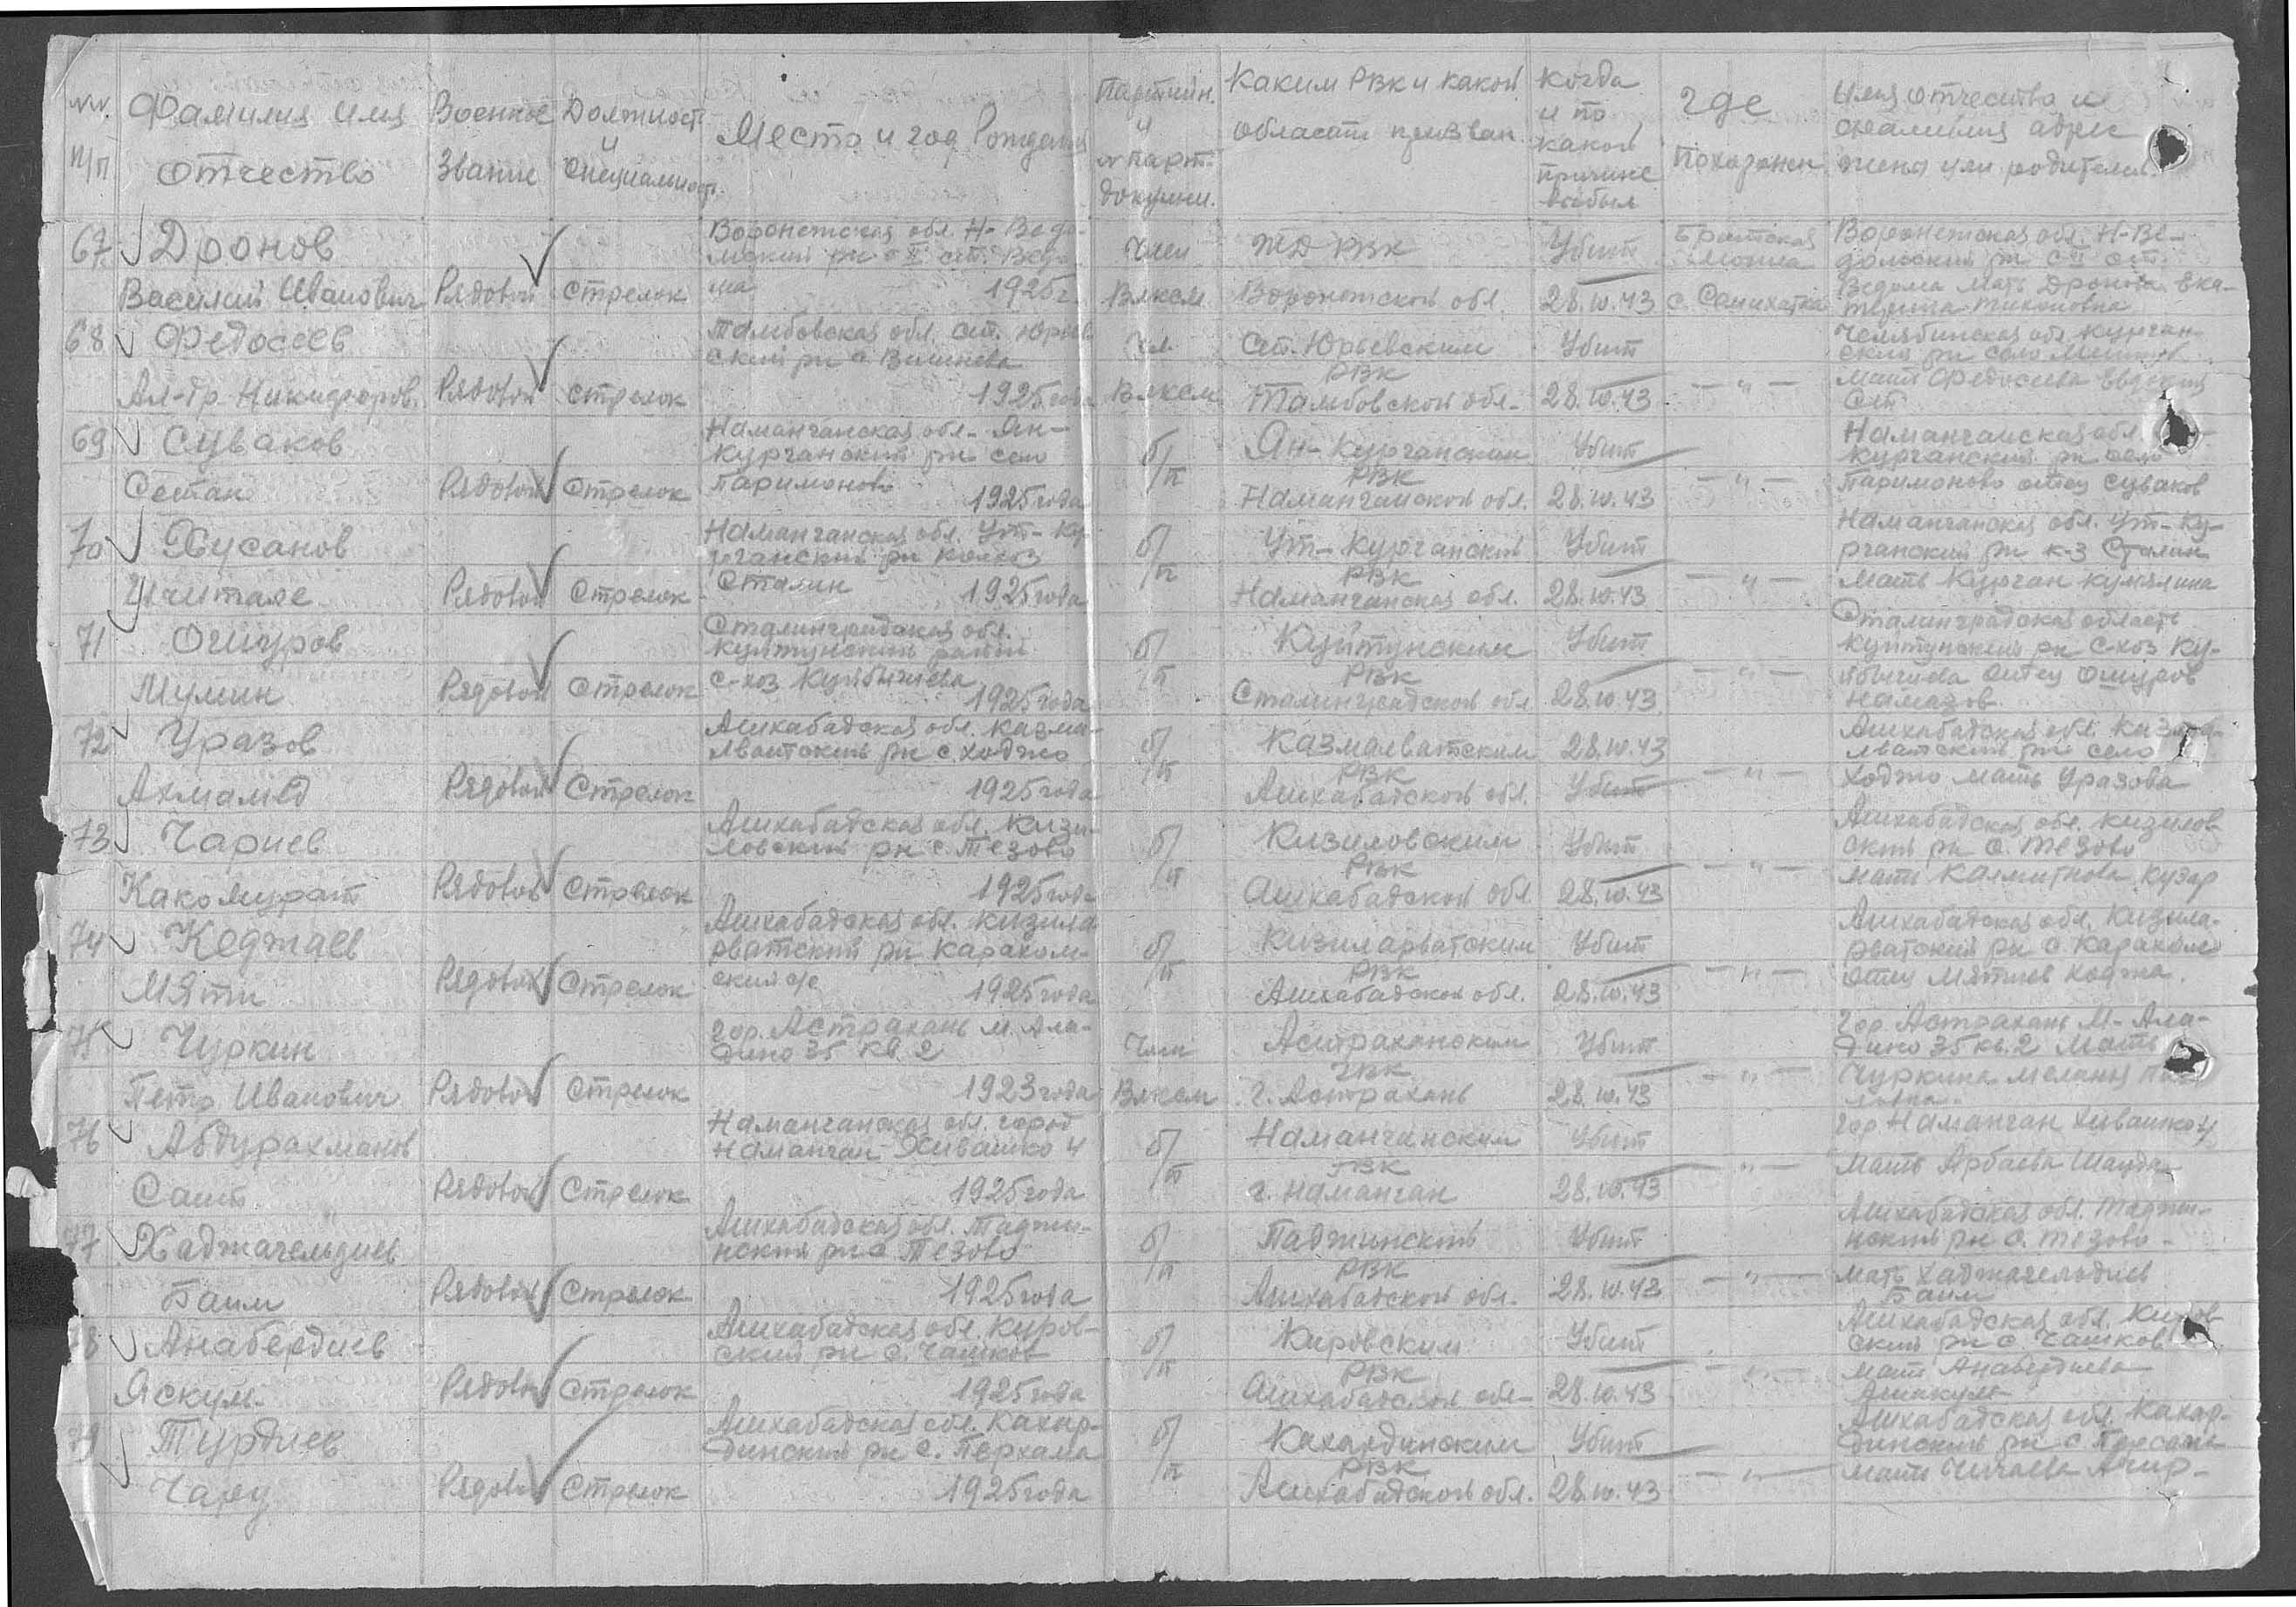 №№ п/п
Фамилия имя отчество
Военное звание
Должность и специальност.
Место и год Рождения
Партийн. и № парт. докумен.
Каким РВК и какой области призван
Когда и по какой причине выбыл
где похоронен
Имя отчество и фамилия адрес жены или родителей
67 Дронов
Василий Иванович
Рядовой
Стрелок
Воронежская обл. Н-Ведо-
1925г.
Член
ВЛКСМ
РВК
Воронежской обл
Убит
28.10.43
Братская могила
с. Сами хатка
Воронежская обл. Н-Ве-
Ведома мать Дронова Ека-
терина Тихоновна
68 Федосеев
Ал-др. Никифоров.
Рядовой
стрелок
Тамбовская обл. ст. Юрьев
ский рн с.
1925 года
Чл.
ВЛКСМ
Ст. Юрьевским
РВК
Тамбовской обл-
Убит
28.10.43
— " —
Челябинская обл. Курган-
ский рн село
мать Федосеева Евдокия
69 Суваков
Рядовой
Стрелок
Наманганская обл- Ян-
курганский рн село
Паримоново
1925 года
б/п
Ян-Курганским
РВК
Наманганской обл.
Убит
28.10.43
— " —
Наманганская обл.
курганский рн село
Паримоново отец Суваков
70 Хусанов
Рядовой
Стрелок
Наманганская обл. Ут-Ку-
рганский рн колхоз
Сталин
1925 года
б/п
Ут-Курганский
РВК
Наманганская обл.
Убит
28.10.43
— " —
Наманганская обл. Ут-Ку-
рганский рн к-з Сталин
мать Курган
71 Ошуров
Мумин
Рядовой
Стрелок
Сталинградская обл.
Куйтунский район
с-хоз Куйбышева
1925 года
б/п
Куйтунским
РВК
Сталинградской обл
Убит
28.10.43
— " —
Сталинградская область
Куйтунский рн С-хоз Ку-
йбышева отец Ошуров
Намазов
72 Уразов
Ахмамед
Рядовой
Стрелок
Ашхабадская обл. Казма-
лватский рн с. Ходжо
1925 года
б/п
Казмалватским
РВК
Ашхабадской обл.
28.10.43
Убит
— " —
Ашхабадская обл.
лватский рн село
Ходжо мать Уразова
73 Чариев
Какомурат
Рядовой
Стрелок
Ашхабадская обл. Кизи-
ловский рн с. Тезово
1925 года
б/п
Кизиловским
РВК
Ашхабадской обл
Убит
28.10.43
— " —
Ашхабадская обл. Кизилов-
ский рн с. Тезово
мать
74 Кеджаев
Мяти
Рядовой
Стрелок
Ашхабадская обл. Кизила
рватский рн Караком-
ский с/с
1925 года
б/п
Кизиларватским
РВК
Ашхабадской обл.
Убит
28.10.43
— " —
Ашхабадская обл. Кизила-
рватский рн с. Караком
отец Мятиев Ходжа.
75 Чуркин
Петр Иванович
Рядовой
Стрелок
гор. Астрахань м. Ала-
дино 35 кв 2
1923 года
Член
ВЛКСМ
Астраханским
ГВК
г. Астрахань
Убит
28.10.43
— " —
Гор. Астрахань М-Ала-
дино 35 кв. 2 Мать
Чуркина Меланья
76 Абдурахманов
Саит
Рядовой
Стрелок
Наманганская обл. город
Наманган Хивашко 4
1925 года
б/п
Наманганским
ГВК
г. Наманган
Убит
28.10.43
— " —
гор Наманган Хивашко 4
мать Арбаева
77 Хаджагельдиев
Баим
Рядовой
Стрелок
Ашхабадская обл. Таджи-
нский рн с. Тезово
1925 года
б/п
Таджинский
РВК
Ашхабадской обл.
Убит
28.10.43
— " —
Ашхабадская обл. Таджи-
нский рн с. Тезово-
мать Хаджагельдиев
Баим
78 Анабердиев
Яскуль
Рядовой
Стрелок
Ашхабадская обл. Киров-
ский рн с. Чашков
1925 года
б/п
Кировским
РВК
Ашхабадской обл-
Убит
28.10.43
— " —
Ашхабадская обл. Киров-
ский рн с. Чашков
мать Анабердиева
79 Турдиев
Чару
Рядовой
Стрелок
Ашхабадская обл. Кахар-
динский рн с.Перхама
1925 года
б/п
Кахардинским
РВК
Ашхабадской обл.
Убит
28.10.43
— " —
Ашхабадская обл. Кахар-
динский рн с
мать